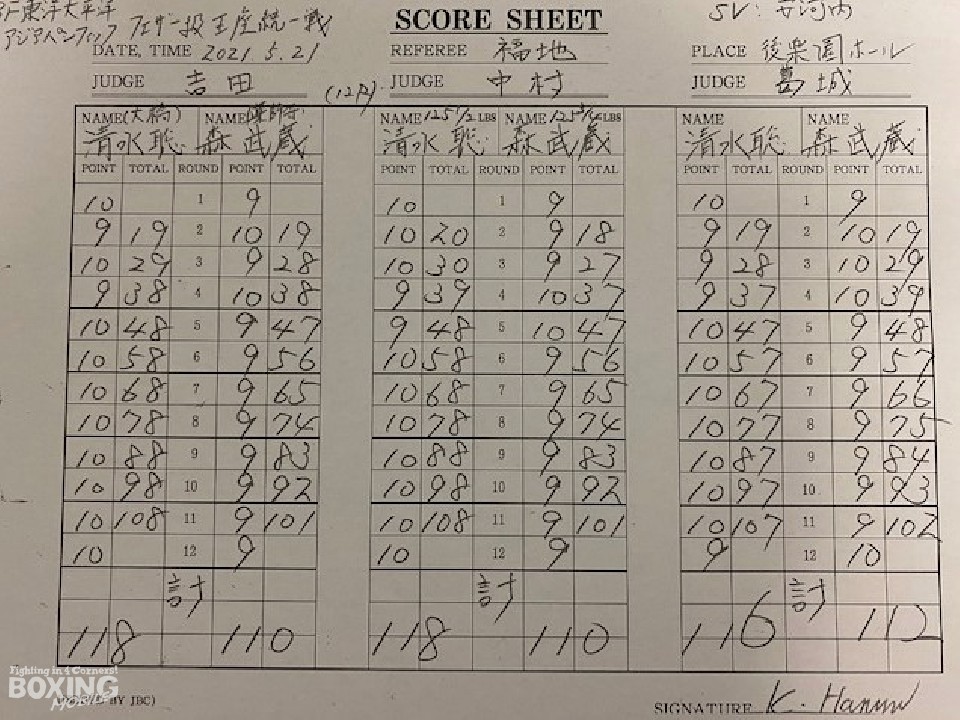 東洋太平洋 SCORE SHEET SV: 安河内
アジアパシフィック フェザー級王座統一戦
DATE, TIME 2021.5.21 REFEREE 福地 PLACE 後楽園ホール
JUDGE 吉田 (12R) JUDGE 中村 JUDGE 葛城
NAME (大橋) NAME (薬師寺) NAME 125 1/2 LBS NAME LBS NAME NAME
清水聡 森武蔵 清水聡 森武蔵 清水聡 森武蔵
POINT TOTAL ROUND POINT TOTAL POINT TOTAL ROUND POINT TOTAL POINT TOTAL ROUND POINT TOTAL
10 1 9 10 1 9 10 1 9
9 19 2 10 19 10 20 2 9 18 9 19 2 10 19
10 29 3 9 28 10 30 3 9 27 9 28 3 10 29
9 38 4 10 38 9 39 4 10 37 9 37 4 10 39
10 48 5 9 47 9 48 5 10 47 10 47 5 9 48
10 58 6 9 56 10 58 6 9 56 10 57 6 9 57
10 68 7 9 65 10 68 7 9 65 10 67 7 9 66
10 78 8 9 74 10 78 8 9 74 10 77 8 9 75
10 88 9 9 83 10 88 9 9 83 10 87 9 9 84
10 98 10 9 92 10 98 10 9 92 10 97 10 9 93
10 108 11 9 101 10 108 11 9 101 10 107 11 9 102
10 12 9 10 12 9 9 12 10
計 計 計
118 110 118 110 116 112
Fighting in 4 Corners!
BOXING
BY JBC) SIGNATURE K.